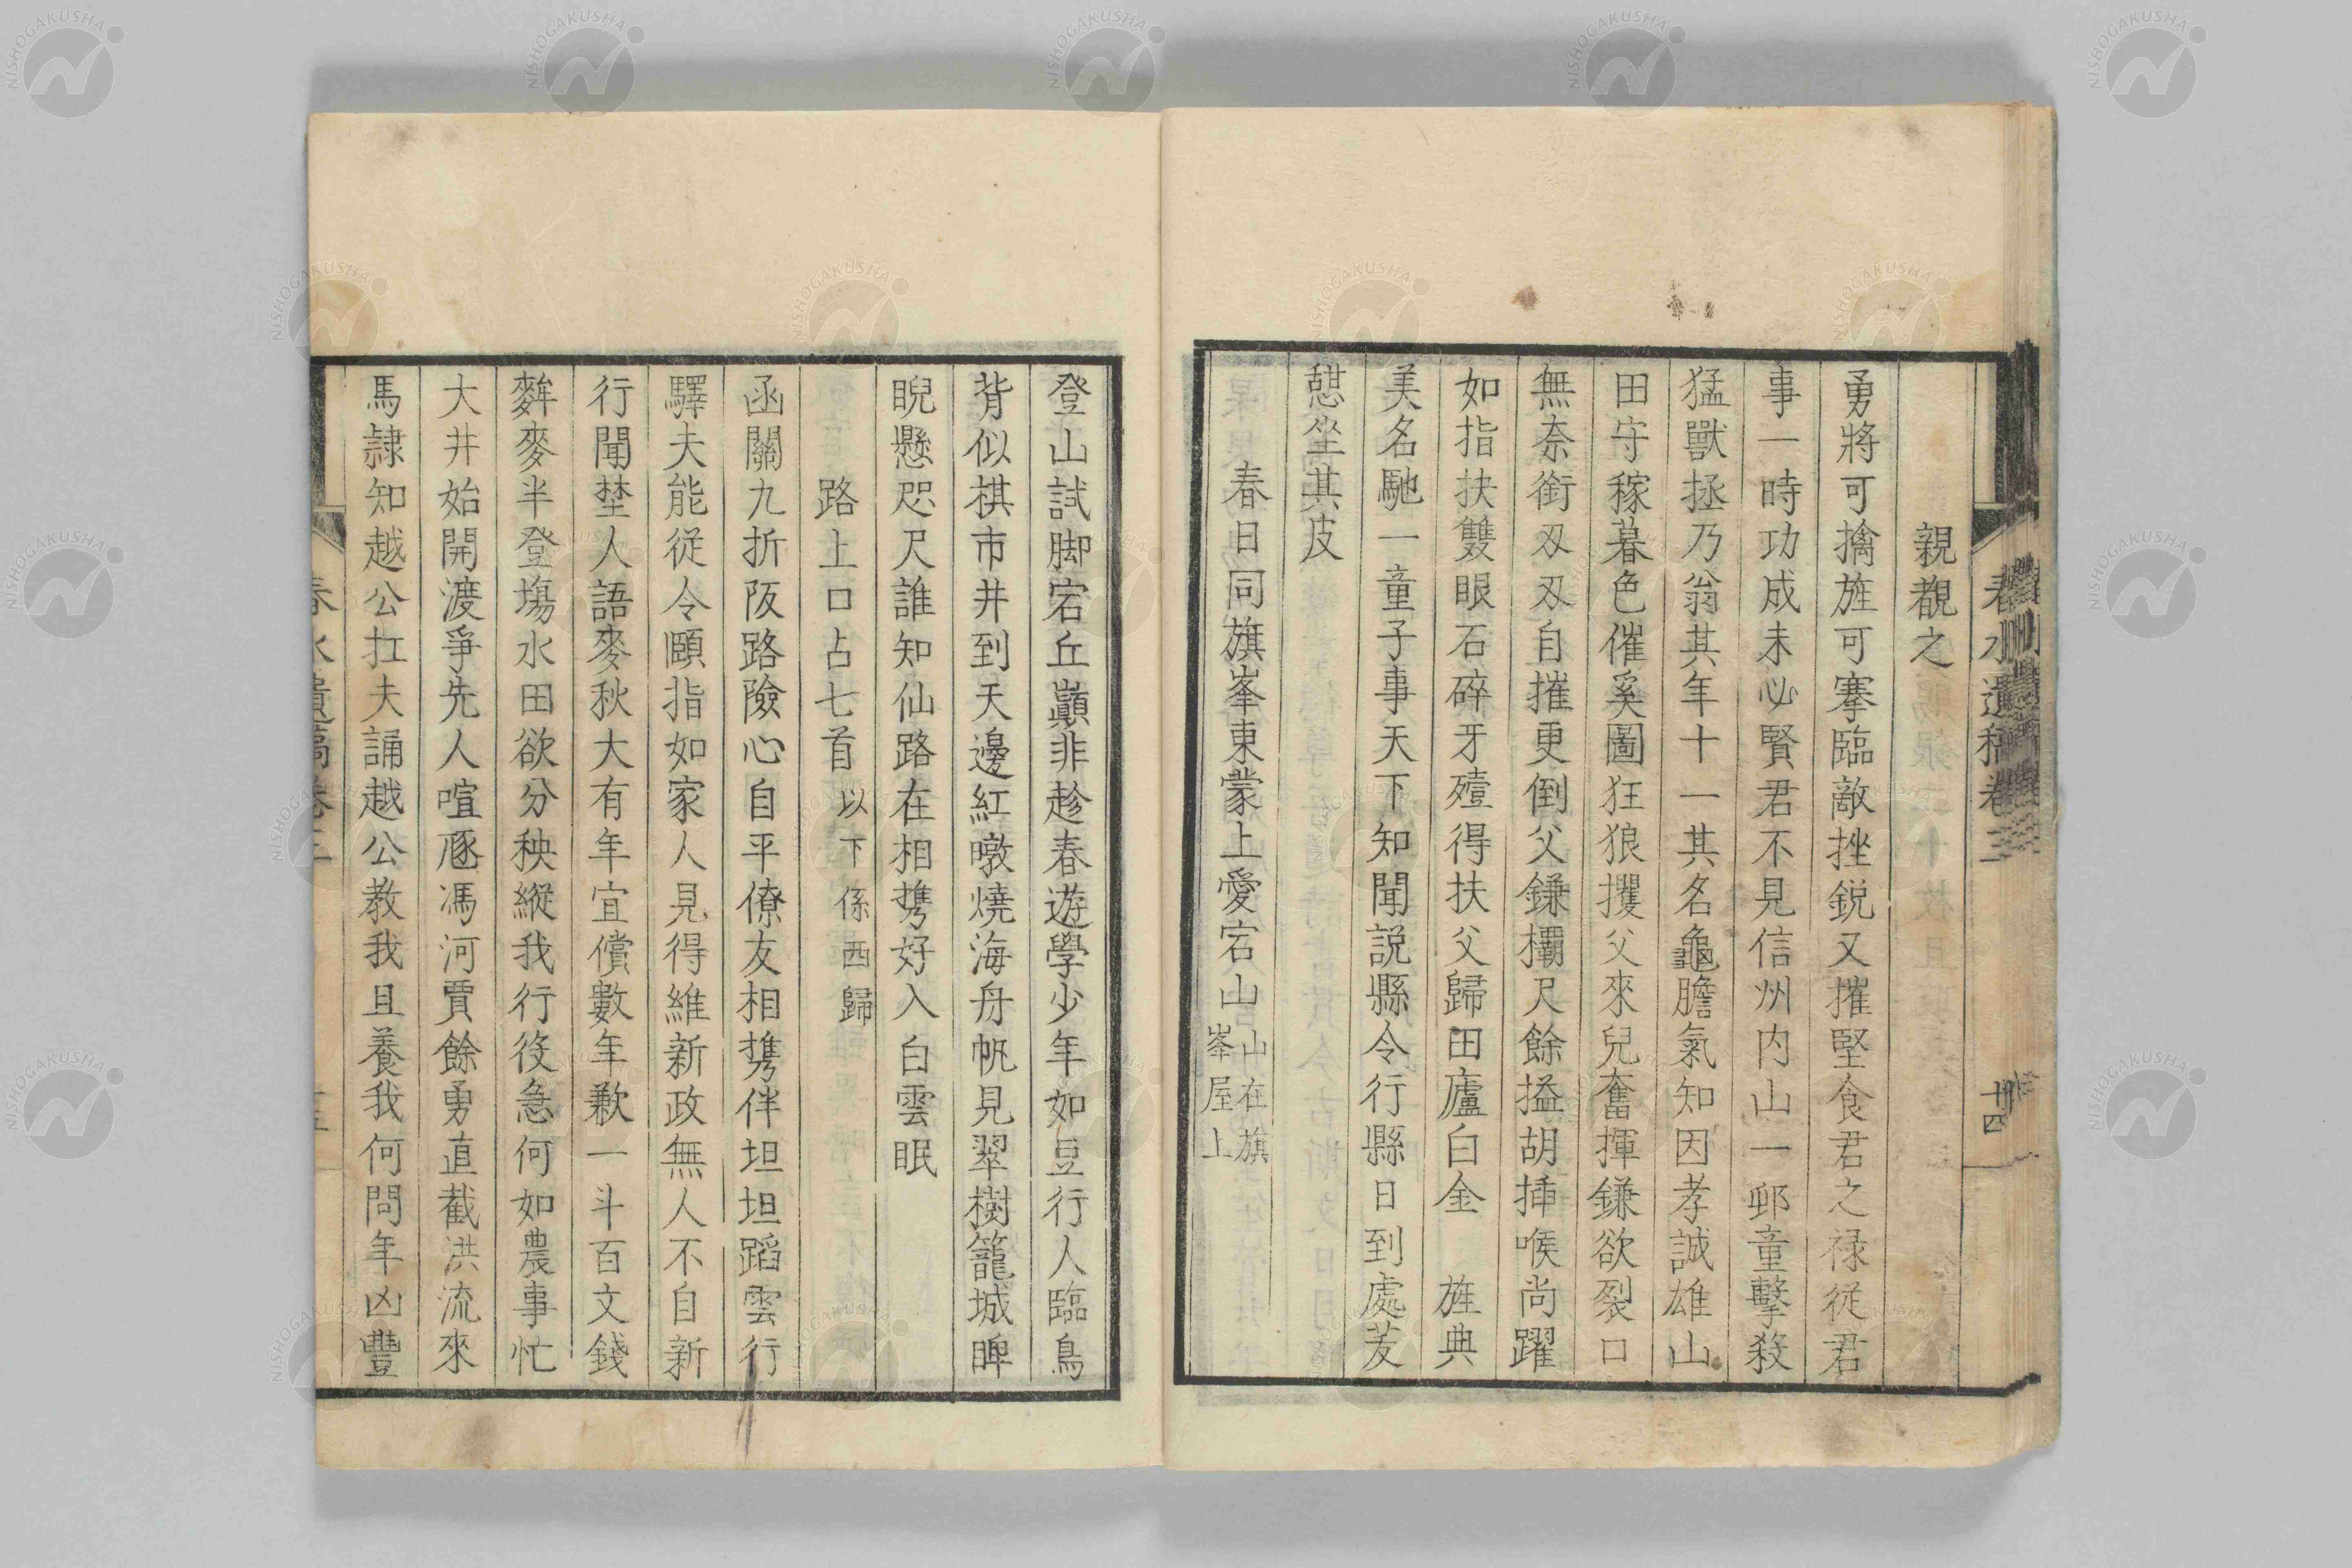 春水遺稿卷三
廿四
親覩之
勇將可擒旌可搴臨敵挫鋭又摧堅食君之禄從君
事一時功成未必賢君不見信州内山一邨童擊殺
猛獸拯乃翁其年十一其名龜膽氣知因孝誠雄山
田守稼暮色催奚圖狂狼攫父來兒奮揮鎌欲裂口
無奈銜刄刄自摧更倒父鎌欛尺餘搤胡揷喉尚躍
如指抉雙眼石碎牙殪得扶父歸田廬白金　旌典
美名馳一童子事天下知聞説縣令行縣日到處茇
憇坐其皮
春日同旗峯東蒙上愛宕山山在旗
峯屋上
登山試脚宕丘巓非趁春遊學少年如豆行人臨鳥
背似棋市井到天邊紅暾燒海舟帆見翠樹籠城睥
睨懸咫尺誰知仙路在相携好入白雲眠
路上口占七首以下係西歸
函關九折阪路險心自平僚友相携伴坦坦蹈雲行
驛夫能從令頤指如家人見得維新政無人不自新
行聞埜人語麥秋大有年宜償數年歉一斗百文錢
麰麥半登塲水田欲分秧縱我行役急何如農事忙
大井始開渡爭先人喧豗馮河賈餘勇直截洪流來
馬隷知越公扛夫誦越公教我且養我何問年凶豐
春水遺稿卷三